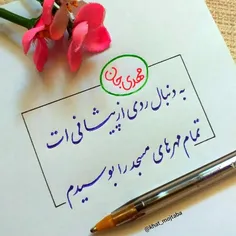 مهدی جان
به دنبال ردی از پیشانی ات
تمام مهرهای مسجد را بوسیدم
@khat_mojtaba